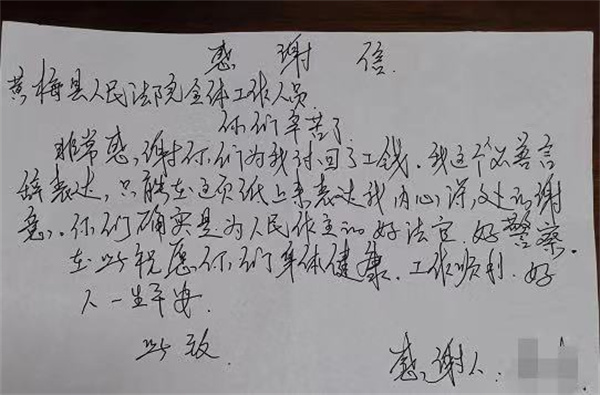 感谢信
黄梅县人民法院全体工作人员
你们辛苦了
非常感谢你们为我讨回了工钱. 我这个不善言
辞表达, 只能在这页纸上来表达我内心深处的谢
意, . 你们确实是为人民作主的好法官. 好警察.
在此祝愿你们身体健康. 工作顺利. 好
人一生平安.
此致.
感谢人: